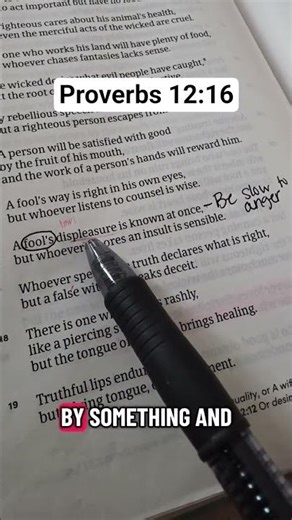 to act important but have no
righteous cares about his animal's health,
even the merciful acts of the wicked are cruel.
one who works his land will have plenty of food,
whoever chases fantasies lacks sense.
wicked what evil people have caught,
the root of
rebellious speech
but a righteous person escapes from
A person will be satisfied with good
by the fruit of his mouth,
and the work of a person's hands will reward him.
A fool's way is right in his own eyes,
but whoever listens to counsel is wise.
A fool's displeasure is known at once, - Be slow to anger
but whoever ignores an insult is sensible.
Whoever speaks truth declares what is right,
but a false deceit.
18 There is one rashly,
like a piercing brings healing.
but the tongue of
19 Truthful lips endure
but tongue, moment.
quality, or A wif
12:12 Or desir
Proverbs 12:16
BY SOMETHING AND